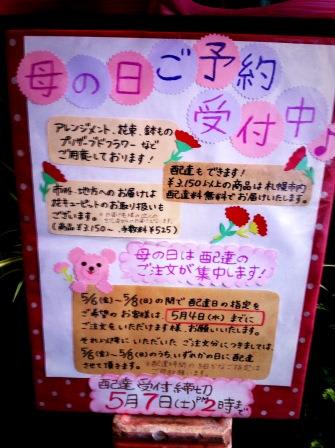 母の日ご予約
受付中♪
アレンジメント、花束、鉢もの
プリザーブドフラワー など
ご用意しております!
配達もできます!
¥3,150以上の商品は札幌市内
配達料無料でお届けいたします。
市外・地方へのお届けは
花キューピットのお取り扱いも
ございます。
(商品¥3,150~、手数料¥525)
母の日は配達の
ご注文が集中します!
5/6(金)~5/8(日)の間で配達日の指定を
ご希望のお客様は、5月4日(水)までに
ご注文をいただけます様、お願いいたします。
それ以降にいただいたご注文分につきましては、
5/6(金)~5/8(日)のうち、いずれかの日に配達
させて頂きます。
配達受付締切
5月7日(土)PM2時まで